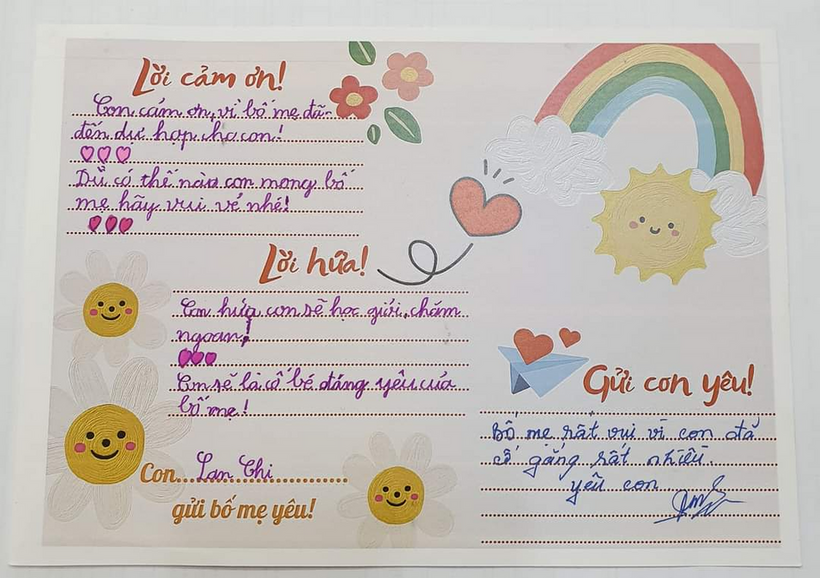 Lời cảm ơn!
Con cám ơn, vì bố mẹ đã
đến dự họp cho con!
Dù có thế nào con mong bố
mẹ hãy vui vẻ nhé!
Lời hứa!
Con hứa con sẽ học giỏi, chăm
ngoan!
Con sẽ là cô bé đáng yêu của
bố mẹ!
Con... Lan Chi
gửi bố mẹ yêu!
Gửi con yêu!
Bố mẹ rất vui vì con đã
cố gắng rất nhiều.
yêu con